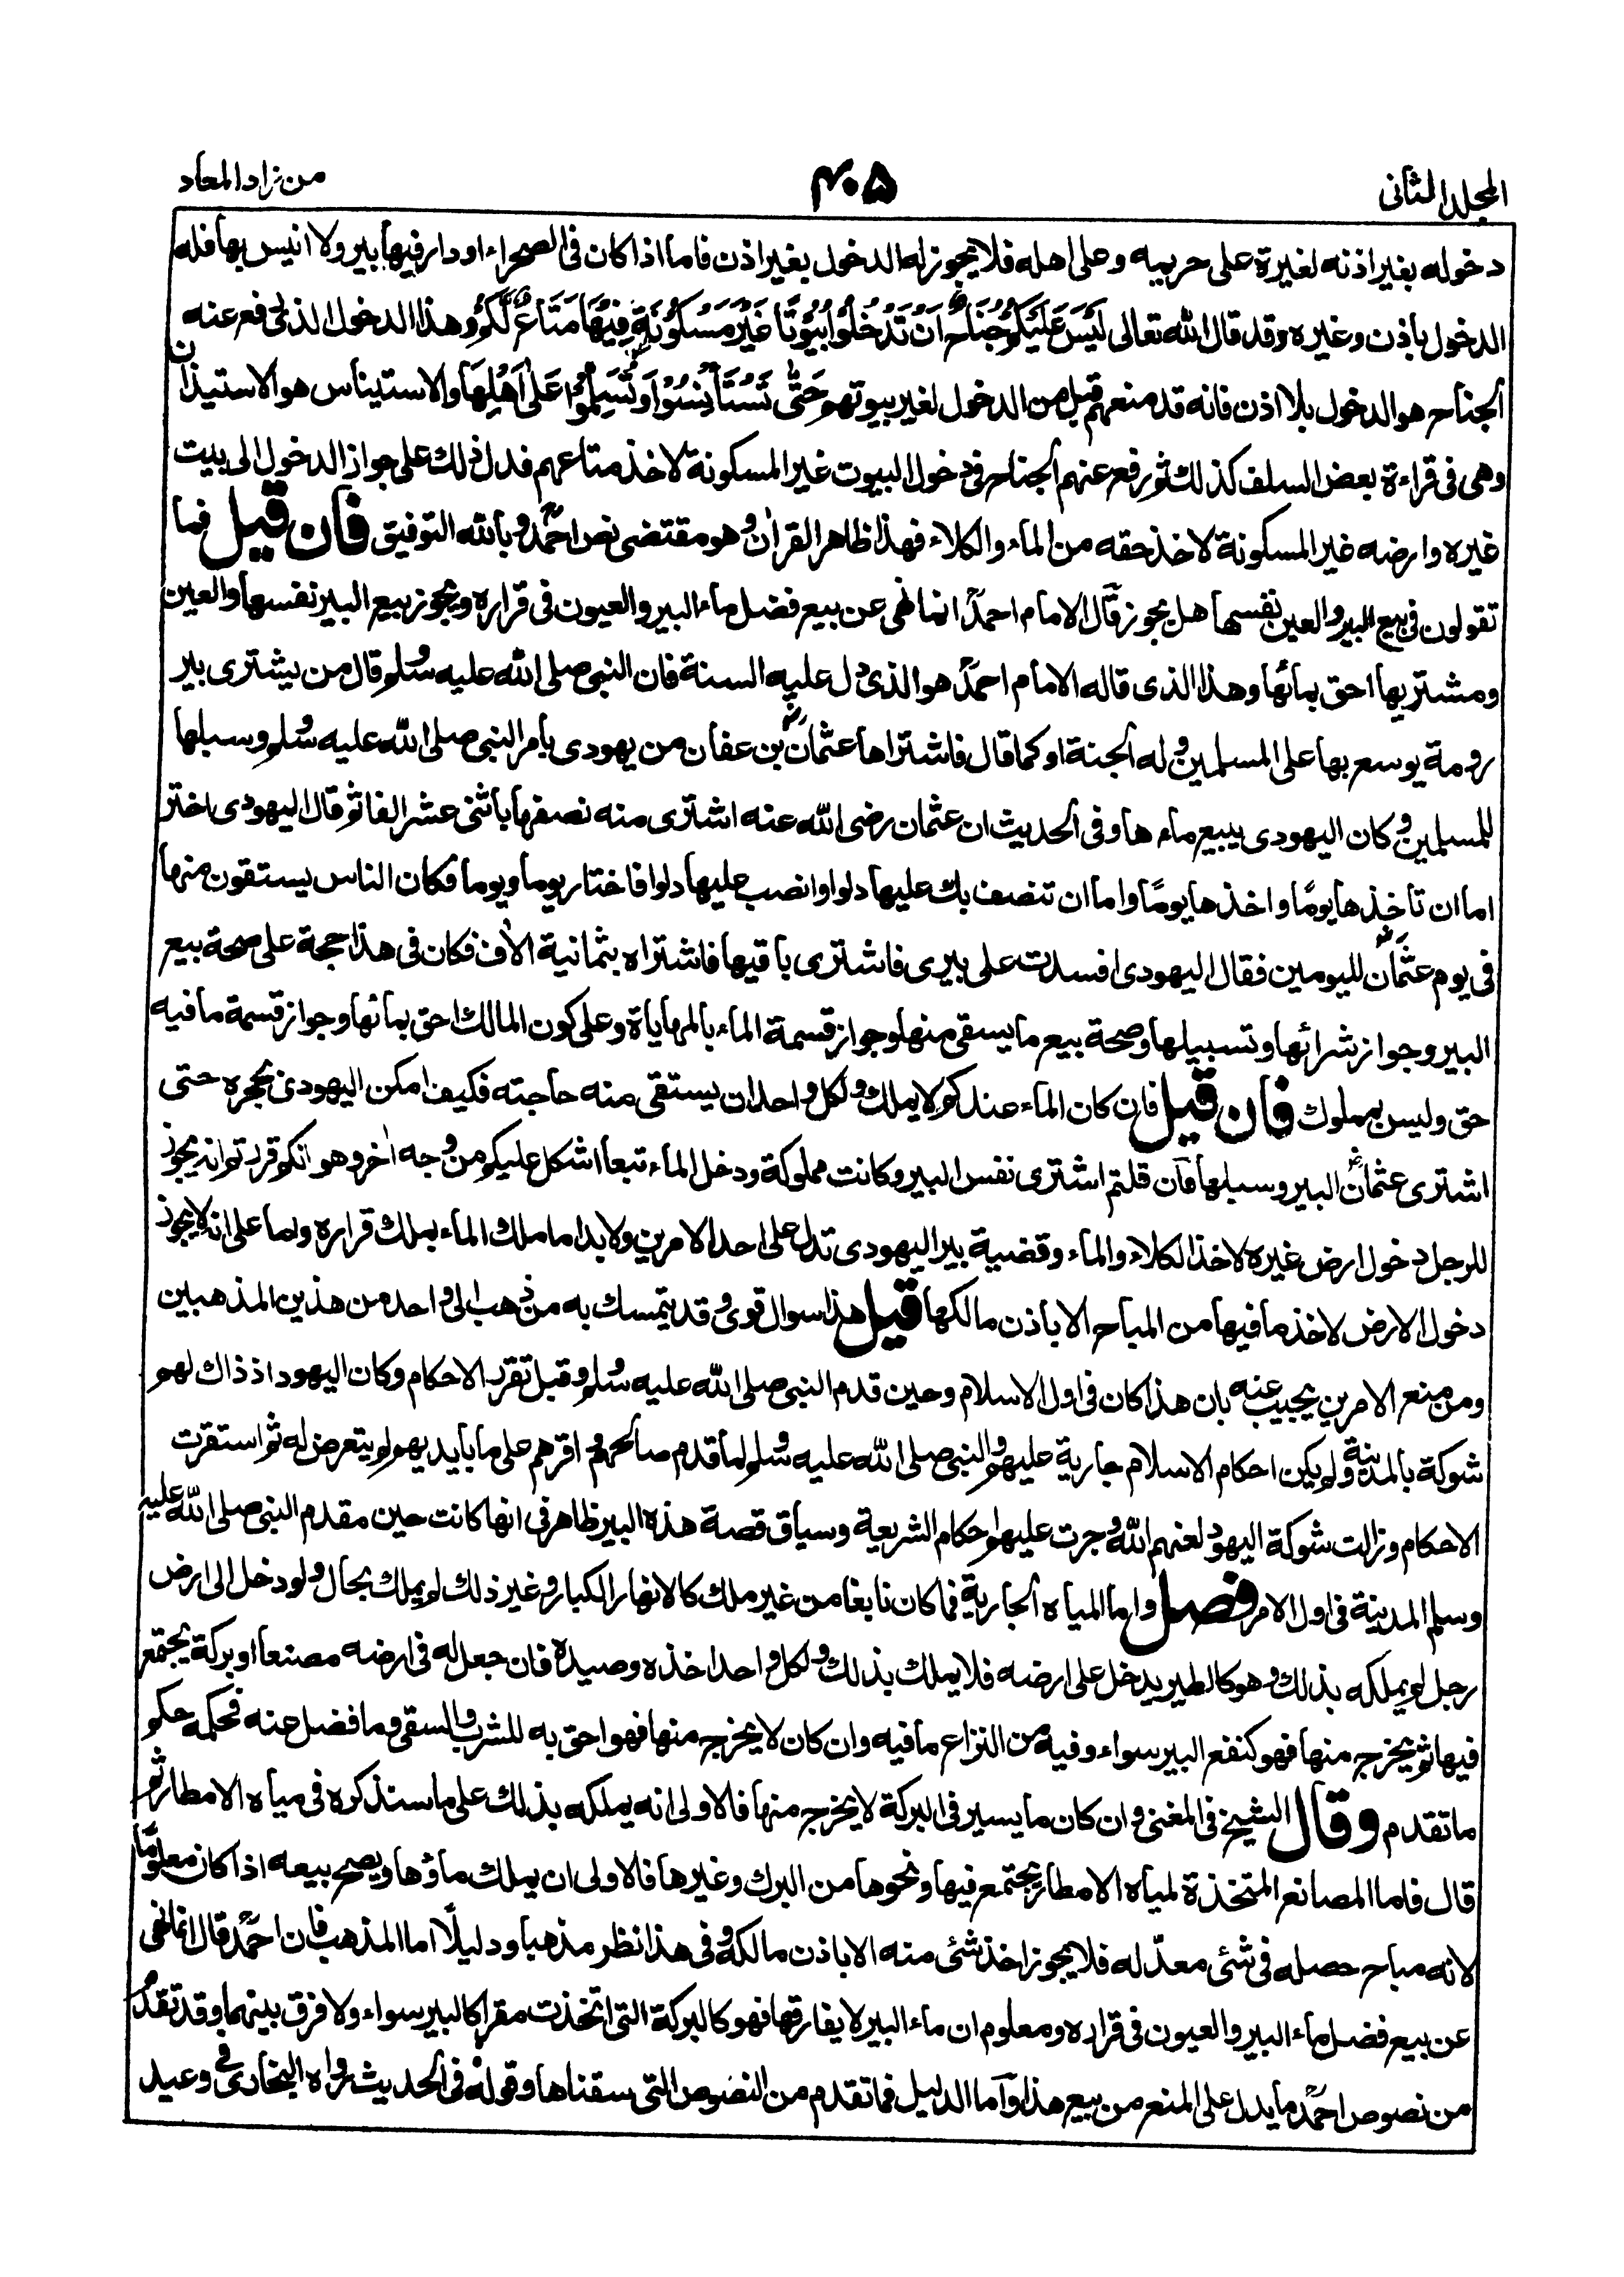 المجلد الثانى
۴۰۵
من زاد المعاد
دخوله بغير اذنه لغيرة على حريمه وعلى اهله فلا يجوز له الدخول بغير اذن فاما اذا كان فى الصحراء او دار فيها بير ولا انيس بها فله
الدخول باذن وغيره وقد قال الله تعالى لَيْسَ عَلَيْكُمْ جُنَاحٌ اَنْ تَدْخُلُوْا بُيُوْتًا غَيْرَ مَسْكُوْنَةٍ فِيْهَا مَتَاعٌ لَّكُمْ وهذا الدخول الذى رفع عنه
الجناح هو الدخول بلا اذن فانه قد منعهم قبل من الدخول لغير بيوتهم حَتّٰى تَسْتَأْنِسُوْا وَتُسَلِّمُوْا عَلٰى اَهْلِهَا والاستيناس هو الاستيذان
وهى فى قراءة بعض السلف كذلك ثم رفع عنهم الجناح فى دخول البيوت غير المسكونة لاخذ متاعهم فدل ذلك على جواز الدخول الى بيت
غيره وارضه غير المسكونة لاخذ حقه من الماء والكلاء فهذا ظاهر القران وهو مقتضى نص احمد وبالله التوفيق فان قيل فما
تقولون فى بيع البير والعين نفسها هل يجوز قال الامام احمد انما نهى عن بيع فضل ماء البير والعيون فى قراره ويجوز بيع البير نفسها والعين
ومشتريها احق بمائها وهذا الذى قاله الامام احمد هو الذى دل عليه السنة فان النبى صلى الله عليه وسلم قال من يشترى بير
رومة يوسع بها على المسلمين وله الجنة او كما قال فاشتراها عثمان بن عفان من يهودى بامر النبى صلى الله عليه وسلم وسبلها
للمسلمين وكان اليهودى يبيع ماءها وفى الحديث ان عثمان رضى الله عنه اشترى منه نصفها باثنى عشر الفا ثم قال اليهودى اختر
اما ان تاخذها يومًا واخذها يومًا واما ان تنصف بك عليها دلوا وانصب عليها دلوا فاختار يوما ويوما فكان الناس يستقون منها
فى يوم عثمان لليومين فقال اليهودى افسدت على بيرى فاشترى باقيها فاشتراه بثمانية الاف فكان فى هذا حجة على صحة بيع
البير وجواز شرائها وتسبيلها وصحة بيع ما يسقى منها وجواز قسمة الماء بالمهاياة وعلى كون المالك احق بمائها وجواز قسمة ما فيه
حق وليس بمملوك فان قيل فان كان الماء عندكم لا يملك ولكل واحد ان يستقى منه حاجته فكيف امكن اليهودى تحجره حتى
اشترى عثمان البير وسبلها فان قلتم اشترى نفس البير وكانت مملوكة ودخل الماء تبعا اشكل عليكم من وجه اخر وهو انكم قررتم انه يجوز
للرجل دخول ارض غيره لاخذ الكلاء والماء وقضية بير اليهودى تدل على احد الامرين ولابد اما ملك الماء بملك قراره واما على انه لا يجوز
دخول الارض لاخذ ما فيها من المباح الا باذن مالكها قيل هذا سوال قوى وقد يتمسك به من ذهب الى واحد من هذين المذهبين
ومن منع الامرين يجيب عنه بان هذا كان فى اول الاسلام وحين قدم النبى صلى الله عليه وسلم وقبل تقرر الاحكام وكان اليهود اذ ذاك لهم
شوكة بالمدينة ولم يكن احكام الاسلام جارية عليهم والنبى صلى الله عليه وسلم لما قدم صالحهم واقرهم على ما بايديهم ولم يتعرض له ثم استقرت
الاحكام وزالت شوكة اليهود لعنهم الله وجرت عليهم احكام الشريعة وسياق قصة هذه البير ظاهر فى انها كانت حين مقدم النبى صلى الله عليه
وسلم المدينة فى اول الامر فصل واما المياه الجارية فما كان نابعا من غير ملك كالانهار الكبار وغير ذلك لم يملك بحال ولو دخل الى ارض
رجل لم يملكه بذلك وهو كالطير يدخل على ارضه فلا يملك بذلك ولكل واحد اخذه وصيده فان جعل له فى ارضه مصنعا او بركة يجتمع
فيها ثم يخرج منها فهو كنفع البير سواء وفيه من النزاع ما فيه وان كان لا يخرج منها فهو احق به للشرب والسقى وما فضل عنه فحكمه حكم
ما تقدم وقال الشيخ فى المغنى وان كان ما يسير فى البركة لا يخرج منها فالاولى انه يملكه بذلك على ما سنذكره فى مياه الامطار ثم
قال فاما المصانع المتخذة لمياه الامطار يجتمع فيها ونحوها من البرك وغيرها فالاولى ان يملك ماؤها ويصح بيعه اذا كان معلومًا
لانه مباح حصله فى شئى معدّ له فلا يجوز اخذ شئى منه الا باذن مالكه وفى هذا نظر مذهبا ودليلًا اما المذهب فان احمد قال انما نهى
عن بيع فضل ماء البير والعيون فى قراره ومعلوم ان ماء البير لا يفارقها فهو كالبركة التى اتخذت مقرا كالبير سواء ولا فرق بينهما وقد تقدم
من نصوص احمد ما يدل على المنع من بيع هذا واما الدليل فما تقدم من النصوص التى سقناها وقوله فى الحديث رواه البخارى فى وعيد